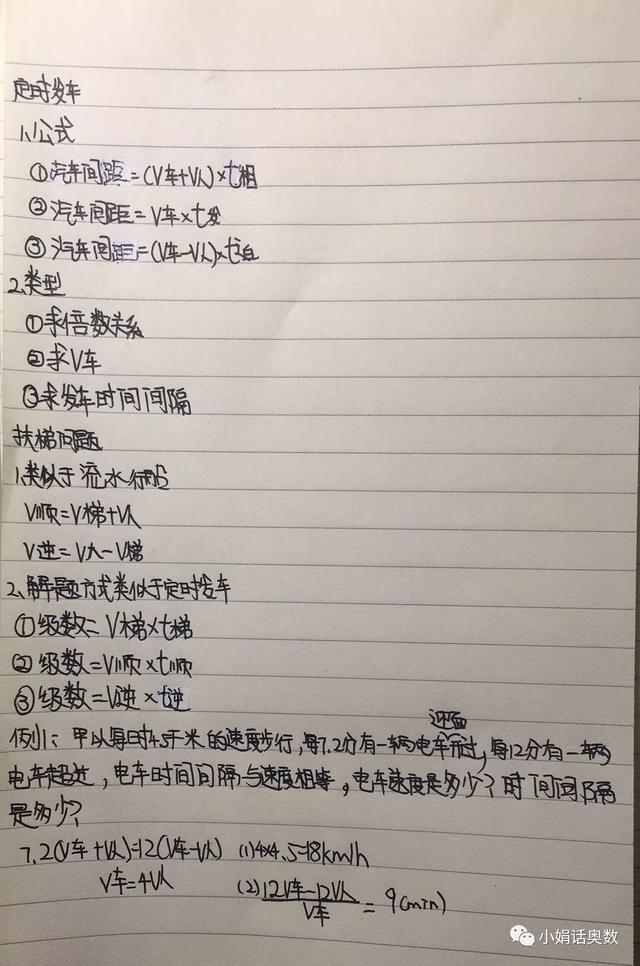 定时发车
1.公式
①汽车间距=(V车+V人)×t相
②汽车间距=V车×t发
③汽车间距=(V车-V人)×t追
2.类型
①求倍数关系
②求V车
③求发车时间间隔
扶梯问题
1.类似于流水行船
V顺=V梯+V人
V逆=V人-V梯
2.解题方式类似于定时发车
①级数=V梯×t梯
②级数=V顺×t顺
③级数=V逆×t逆
迎面
例1:甲以每时4.5千米的速度步行,每7.2分有一辆电车开过,每12分有一辆
电车超过,电车时间间隔与速度相等,电车速度是多少?时间间隔
是多少?
7.2(V车+V人)=12(V车-V人) (1)4×4.5=18km/h
V车=4V人 (2)12V车-12V人/V车=9(min)
小娟话奥数